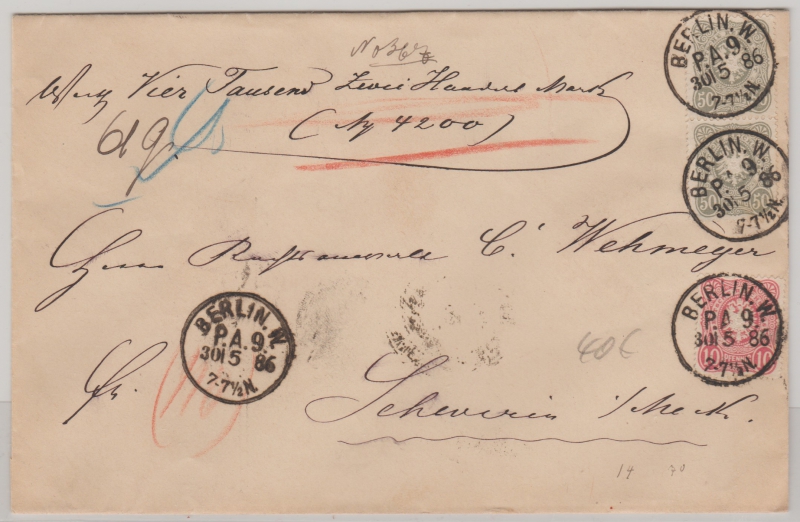 No 367
Vier Tausend Zwei Hundert Mark
( M 4200 )
61 gr
Herrn Rechtsanwalt C. Wehmeyer
Fr.
Schwerin i/Meck.
40€
14 70
BERLIN. W.
P.A.9.
30 5 86
7-7½N.
50 50
BERLIN. W.
P.A.9.
30 5 86
7-7½N.
50 50
BERLIN. W.
P.A.9.
30 5 86
7-7½N.
10 10
BERLIN. W.
P.A.9.
30 5 86
7-7½N.